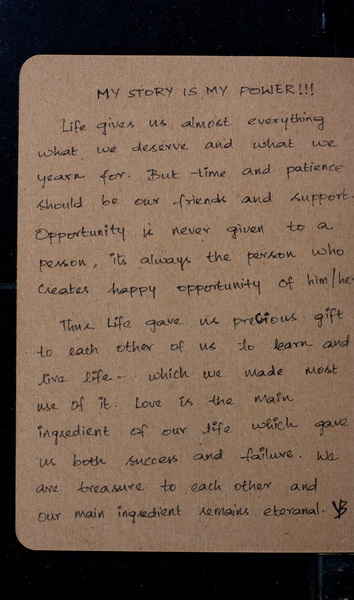 MY STORY IS MY POWER!!!
Life gives us almost everything
what we deserve and what we
yearn for. But time and patience
should be our friends and support.
Opportunity is never given to a
person, its always the person who
creates happy opportunity of him/her
Thus Life gave us precious gift
to each other of us to learn and
live life - which we made most
use of it. Love is the main
ingredient of our life which gave
us both success and failure. We
are treasure to each other and
our main ingredient remains eteranal. VB